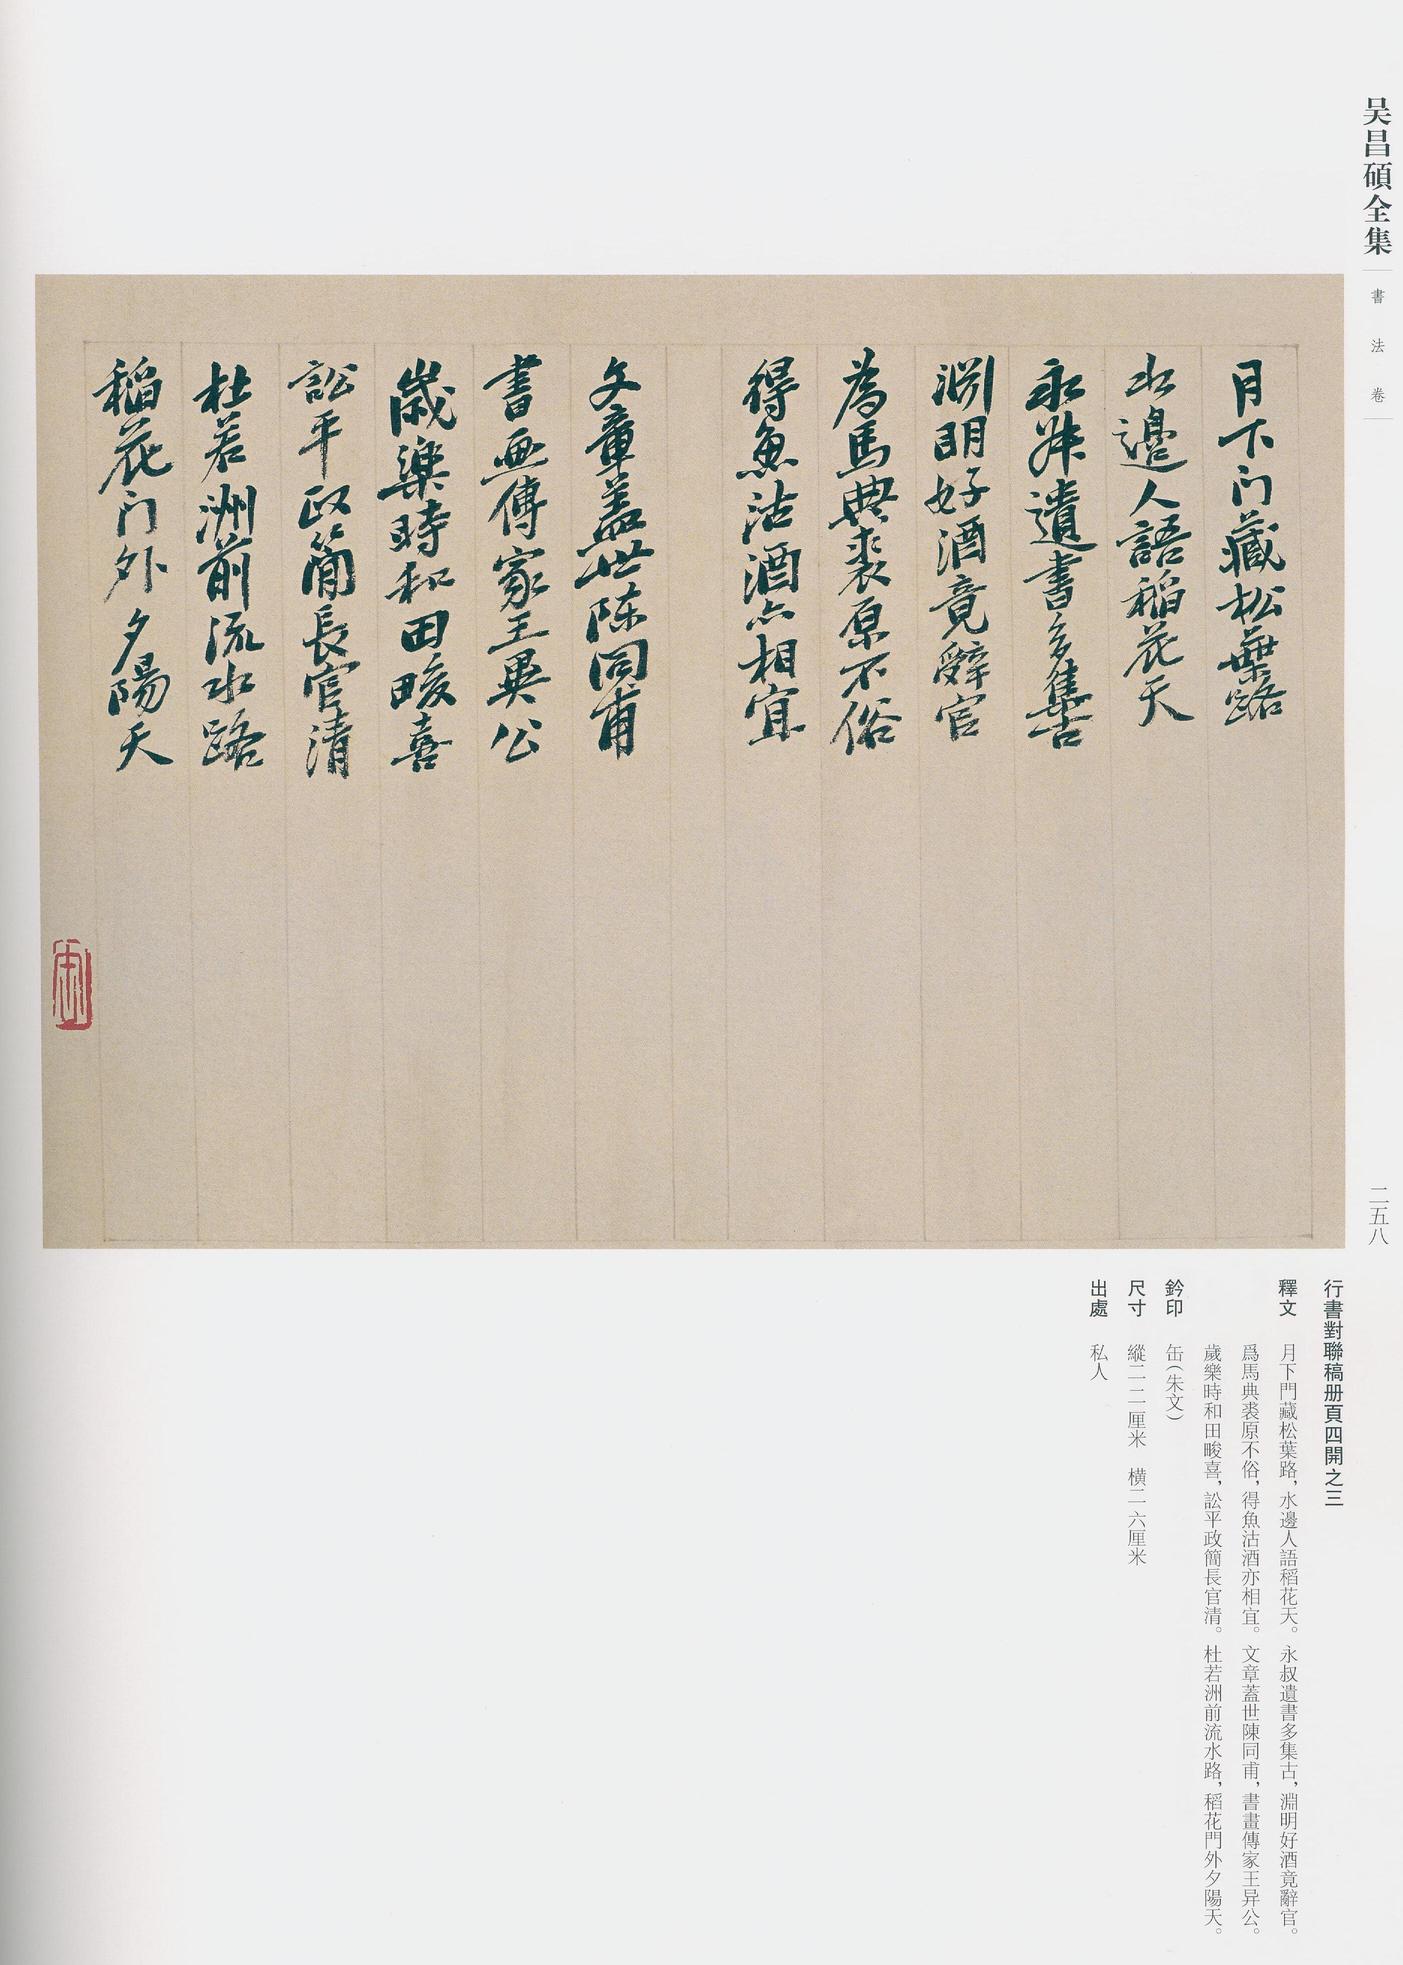 吴昌碩全集
書法卷
二五八
月下门藏松葉路
水邊人語稻花天
永叔遺書多集古
淵明好酒竟辭官
為馬典裘原不俗
得魚沽酒亦相宜
文章蓋世陳同甫
書畫傳家王異公
歲樂時和田畯喜
訟平政簡長官清
杜若洲前流水路
稻花门外夕陽天
缶
行書對聯稿册頁四開之三
釋文 月下門藏松葉路，水邊人語稻花天。永叔遺書多集古，淵明好酒竟辭官。
爲馬典裘原不俗，得魚沽酒亦相宜。文章蓋世陳同甫，書畫傳家王异公。
歲樂時和田畯喜，訟平政簡長官清。杜若洲前流水路，稻花門外夕陽天。
鈐印 缶（朱文）
尺寸 縱二二厘米 横二六厘米
出處 私人